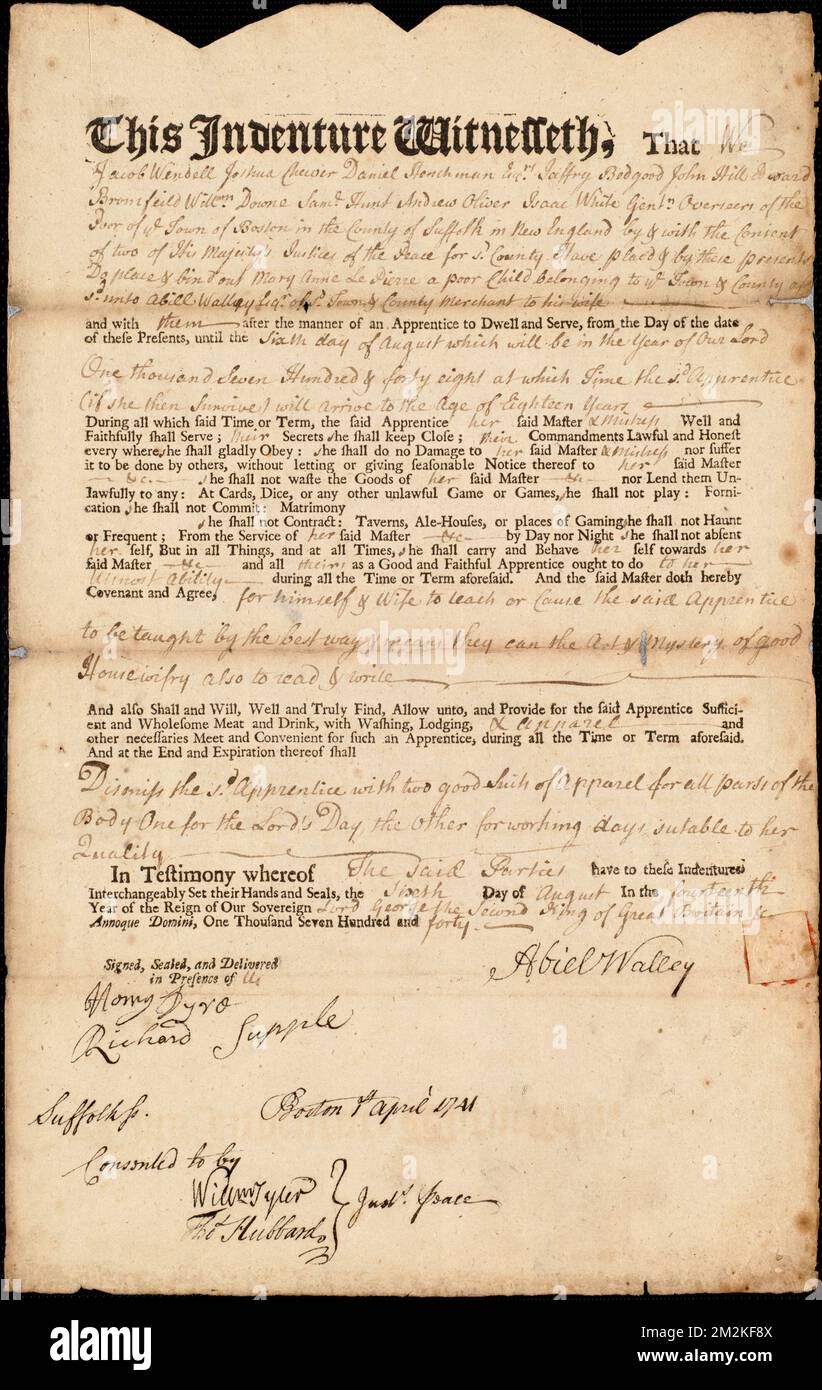 This Indenture Witnesseth, That We
Jacob Wendell Joshua Cheever Daniel Henchman Esqrs Jaffry Bedgood John Hill Edward
Bromfeild Willm Downe Saml Hunt Andrew Oliver Isaac White Gentn Overseers of the
Poor of ye Town of Boston in the County of Suffolk in New England by & with the Consent
of two of His Majestys Justices of the Peace for sd County Have placd & by these presents
Do place & bind out Mary Anne Le Pierre a poor Child belonging to ye Town & County
sd unto Abiel Walley Esqr of sd Town & County Merchant to his wife
and with them after the manner of an Apprentice to Dwell and Serve, from the Day of the date
of these Presents, until the Sixth day of August which will be in the Year of Our Lord
One thousand Seven Hundred & forty eight at which Time the sd Apprentice
(if she then Survive) will arrive to the Age of Eighteen Years
During all which said Time or Term, the said Apprentice her said Master & Mistress Well and
Faithfully shall Serve; their Secrets she shall keep Close; their Commandments Lawful and Honest
every where she shall gladly Obey: she shall do no Damage to her said Master & Mistress nor suffer
it to be done by others, without letting or giving seasonable Notice thereof to her said Master
&c. she shall not waste the Goods of her said Master &c nor Lend them Un-
lawfully to any: At Cards, Dice, or any other unlawful Game or Games, she shall not play: Forni-
cation she shall not Commit: Matrimony
she shall not Contract: Taverns, Ale-Houses, or places of Gaming she shall not Haunt
or Frequent; From the Service of her said Master &c by Day nor Night she shall not absent
her self, But in all Things, and at all Times, she shall carry and Behave her self towards her
said Master &c and all theirs as a Good and Faithful Apprentice ought to do to her
Utmost Ability during all the Time or Term aforesaid. And the said Master doth hereby
Covenant and Agree, for himself & Wife to teach or Cause the said Apprentice
to be taught by the best way & means they can the Art & Mystery of good
Housewifry also to read & write
And also Shall and Will, Well and Truly Find, Allow unto, and Provide for the said Apprentice Suffici-
ent and Wholesome Meat and Drink, with Washing, Lodging, & apparel and
other necessaries Meet and Convenient for such an Apprentice, during all the Time or Term aforesaid.
And at the End and Expiration thereof shall
Dismiss the sd Apprentice with two good Suits of Apparel for all parts of the
Body One for the Lord's Day the other for working days sutable to her
Quality
In Testimony whereof The said Parties have to these Indentures
Interchangeably Set their Hands and Seals, the Sixth Day of August In the fourteenth
Year of the Reign of Our Sovereign Lord George the Second King of Great Britain &c
Annoque Domini, One Thousand Seven Hundred and forty.
Signed, Sealed, and Delivered
in Presence of Us
Abiel Walley
Richard Supple
Suffolk ss. Boston April 1741
Consented to by
Willm Tyler
Thos Hubbard
Just. Peace
alamy
Image ID: 2M2KF8X
www.alamy.com